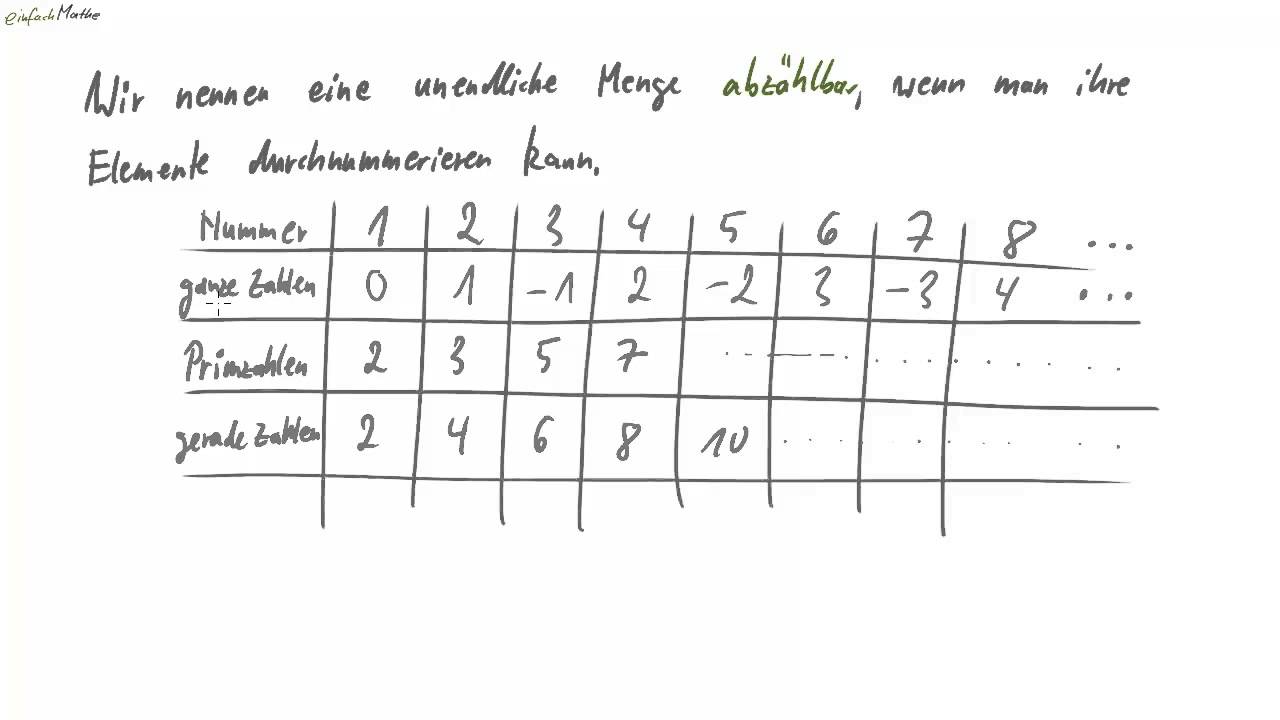 einfachMathe
Wir nennen eine unendliche Menge abzählbar, wenn man ihre
Elemente durchnummerieren kann.
Nummer 1 2 3 4 5 6 7 8 ...
ganze Zahlen 0 1 -1 2 -2 3 -3 4 ...
Primzahlen 2 3 5 7
gerade Zahlen 2 4 6 8 10